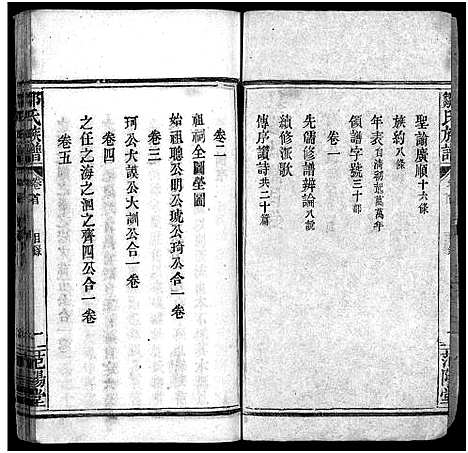 鄒氏族譜
聖諭廣順十六條
族約八條
年表自清初起萬萬年
領譜字號三十部
卷一
先儒修譜辨論八說
續修派歌
傳序讚詩共二十篇
范陽堂
卷二
祖祠全圖塋圖
始祖聰公明公琥公琦公
卷三
珂公大謨公大訓公合一卷
卷四
之任之海之泗之齊四公合一卷
卷五
鄒氏族譜
卷首
目錄
一
范陽堂